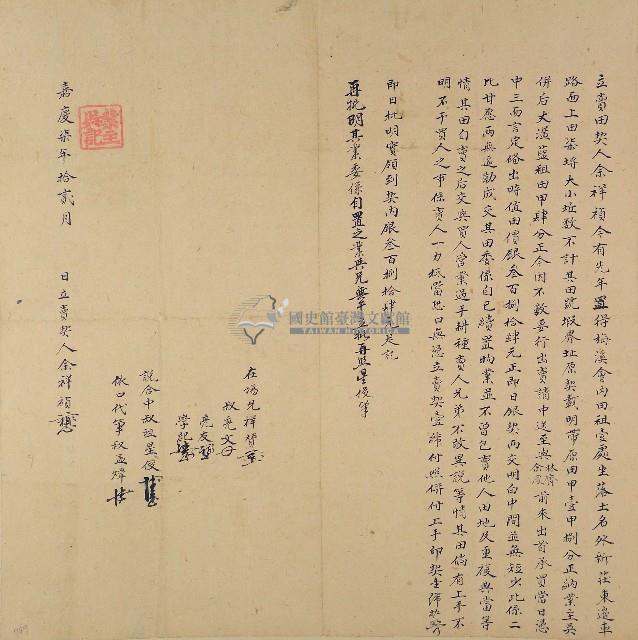 立賣田契人余祥禎今有先年置得梅溪會內田壹處坐落土名外新莊東邊車
路西上田柒坵大小坵數不計其田號坵界址原契載明帶原田甲壹甲捌分正納業主吳
併后大溪藍租田甲肆分正今因不敷要行出賣請中送至與林齊余鳳前來出首承買當日憑
中三面言定俻出時值田價銀叁百捌拾肆元正即日銀契兩交明白中間並無短少此係二
比甘愿兩無逼勒成交其田委係自己續置物業並不曾包賣他人田地及重複典當等
情其田自賣之后交與買人管業過手耕種賣人兄弟不敢異說等情其田倘有上手不
明不干買人之事係賣人一力抵當恐口無憑立賣契壹紙付照併付上手印契壹
即日批明實領到契內銀叁百捌拾肆元足訖
再批明其業委係自置之業與兄無干立批再照星俊筆
在場兄祥贊
叔堯文
堯友
學起
說合中叔祖星俊
依口代筆叔孟煒
嘉慶柒年拾貳月 日立賣契人余祥禎
國史館臺灣文獻館
TAIWAN HISTORICA